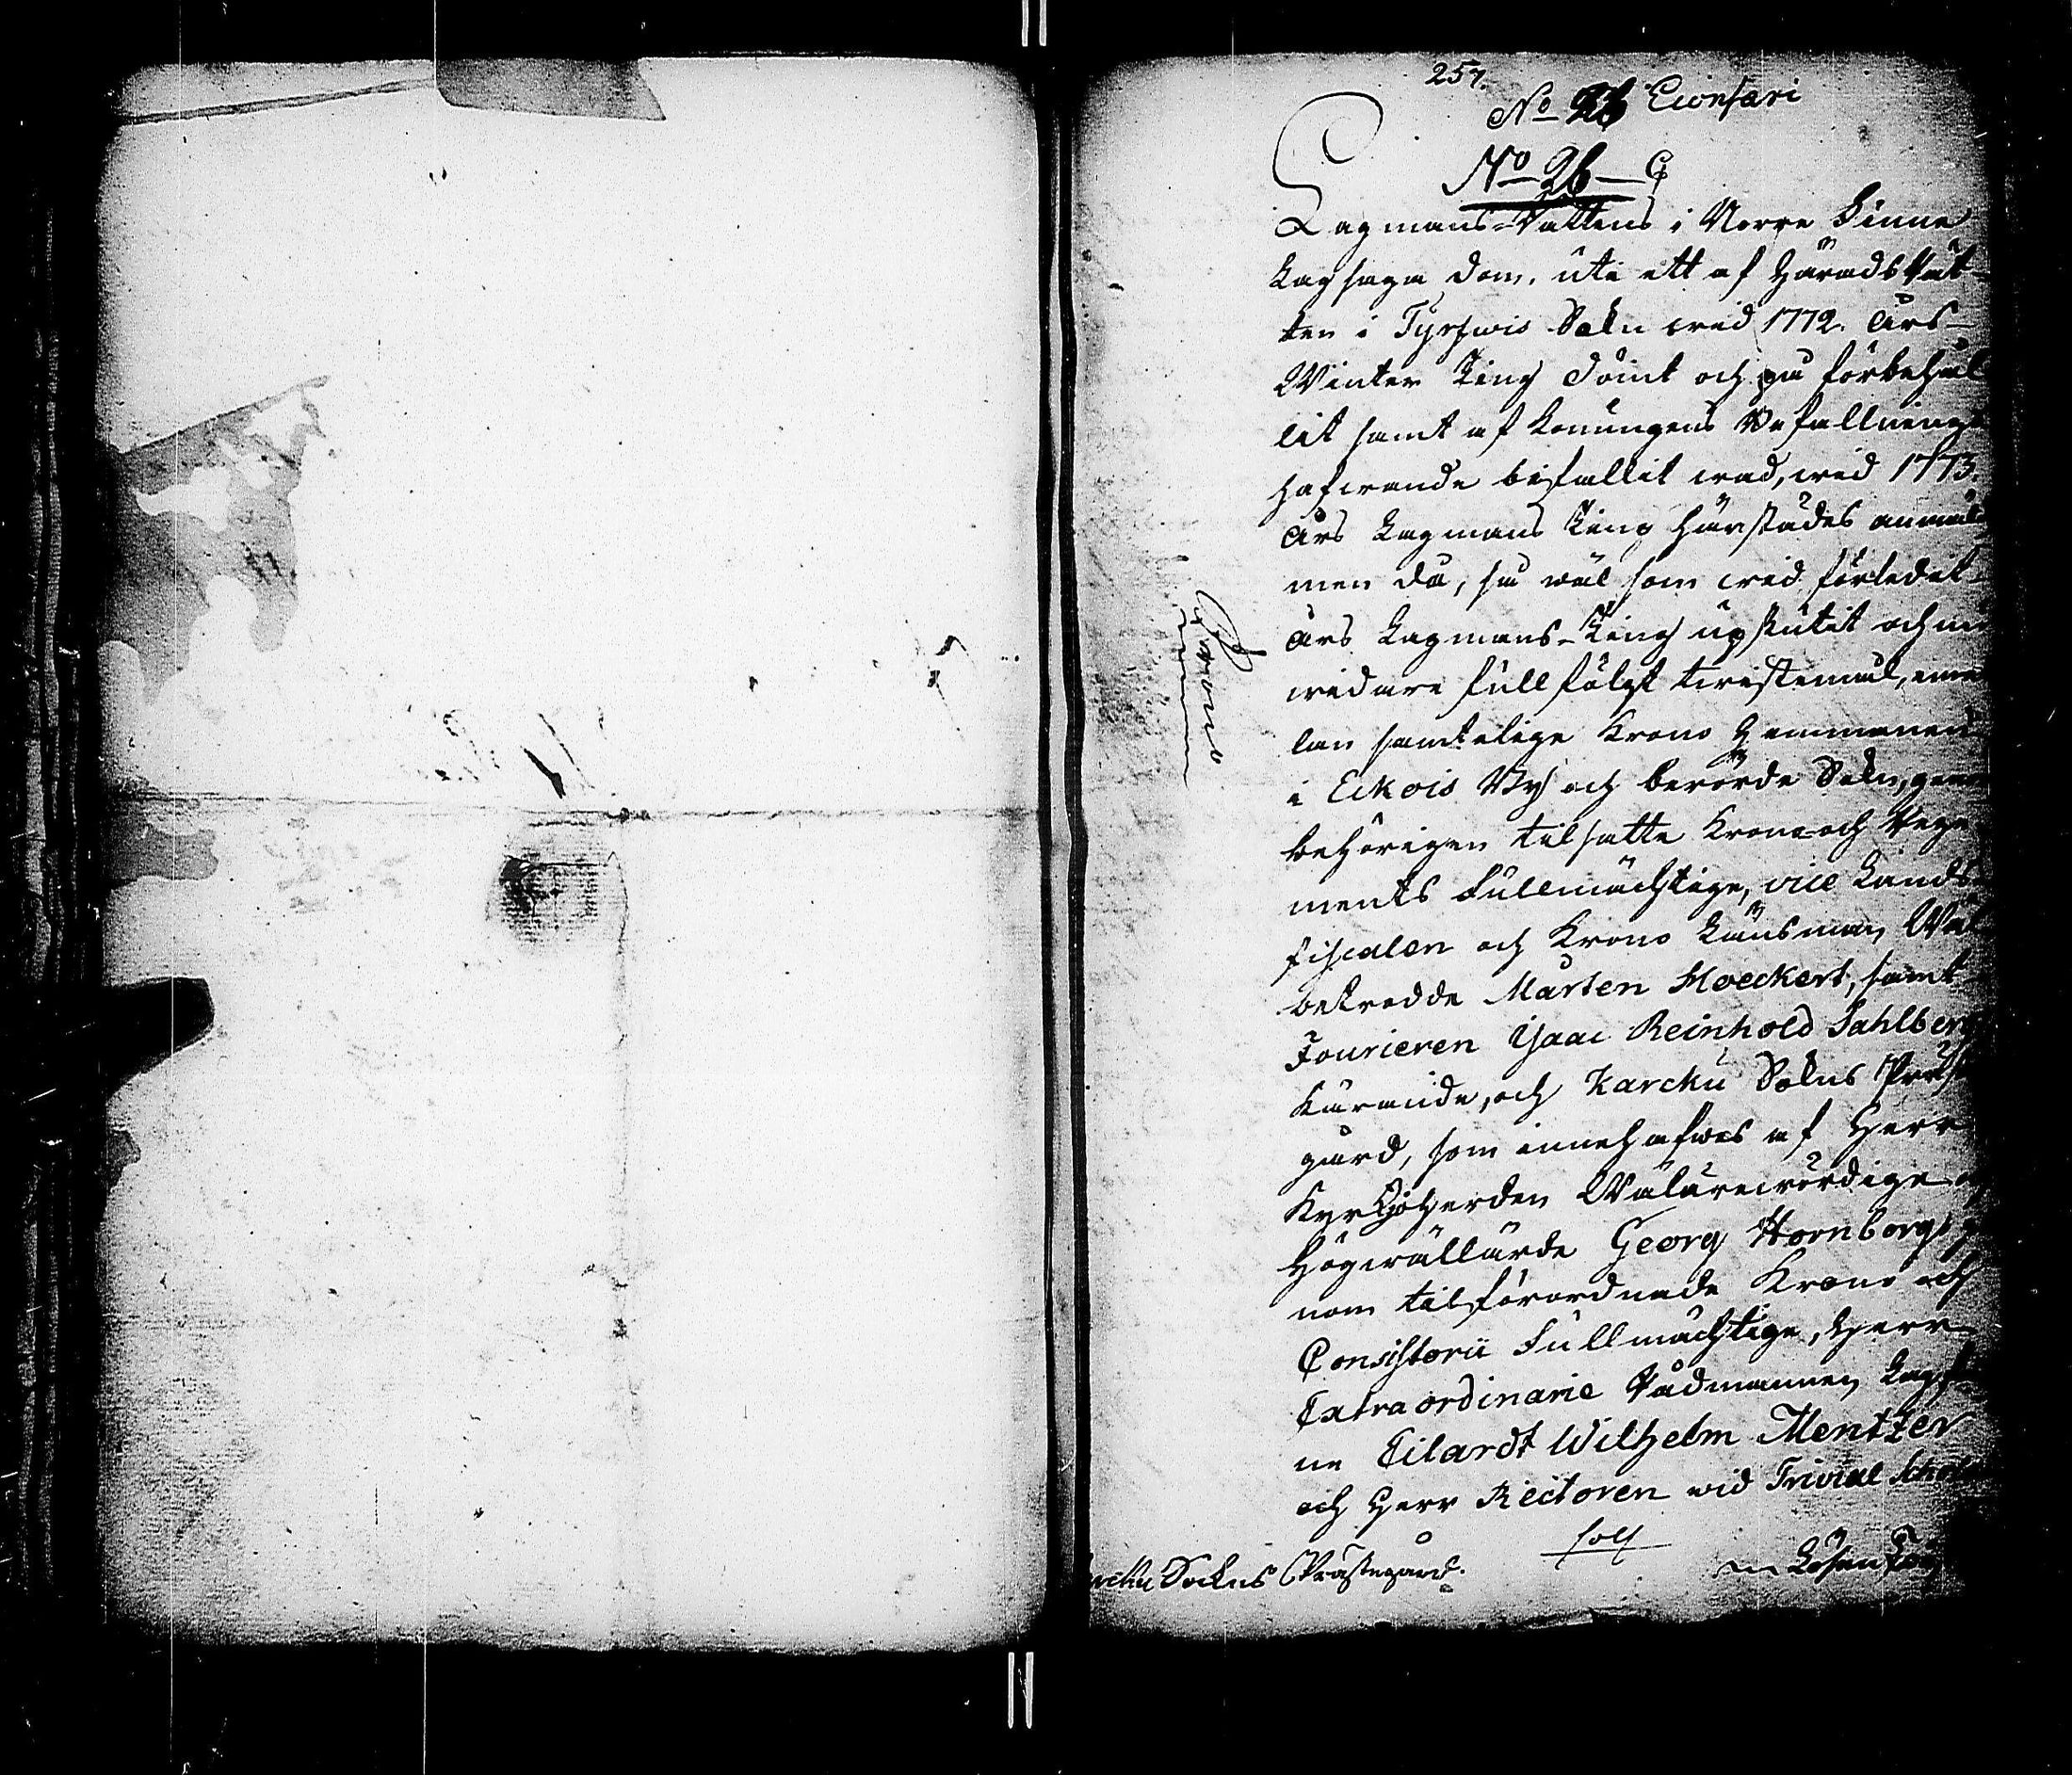 257.
No 26
No 26 C
Lagmans-Rättens i Norre Finne
Lagsaga dom, uti ett af HäradsRät-
ten i Tyrfwis Sokn wid 1772. Års
Winter Ting dömt och på förbehål
lit samt af Konungens Befallnings
hafwande bifallit wad, wid 1773.
Års Lagmans Ting härstädes anmält
men då, så wäl som wid förledit
Års Lagmans-Ting upskutit och nu
widare fullfölgt twistemål, emel
lan samtelige Krono Hemmanen
i Eckois By och berörde Sokn, genom
behörigen tilsatte Krono och Rege
ments Fullmächtige, vice Lands
fiscalen och Krono Länsman Wäl
betrodde Mårten Hoeckert, samt
Fourieren Isaac Reinhold Sahlberg
Kärande, och Karcku Sokns Präste
gård, som innehafwes af Herr
Kyrckioherden Wälärewördige och
Högwällärde Georg Hornborg, ge
nom tilförordnade Krono och
Consistorii Fullmächtige, Herr
Extraordinarie Rådmannen Lagfar
ne Eilardt Wilhelm Mentzer
och Herr Rectoren wid Trivial Schola
Sokns Prästegård.
Lösen